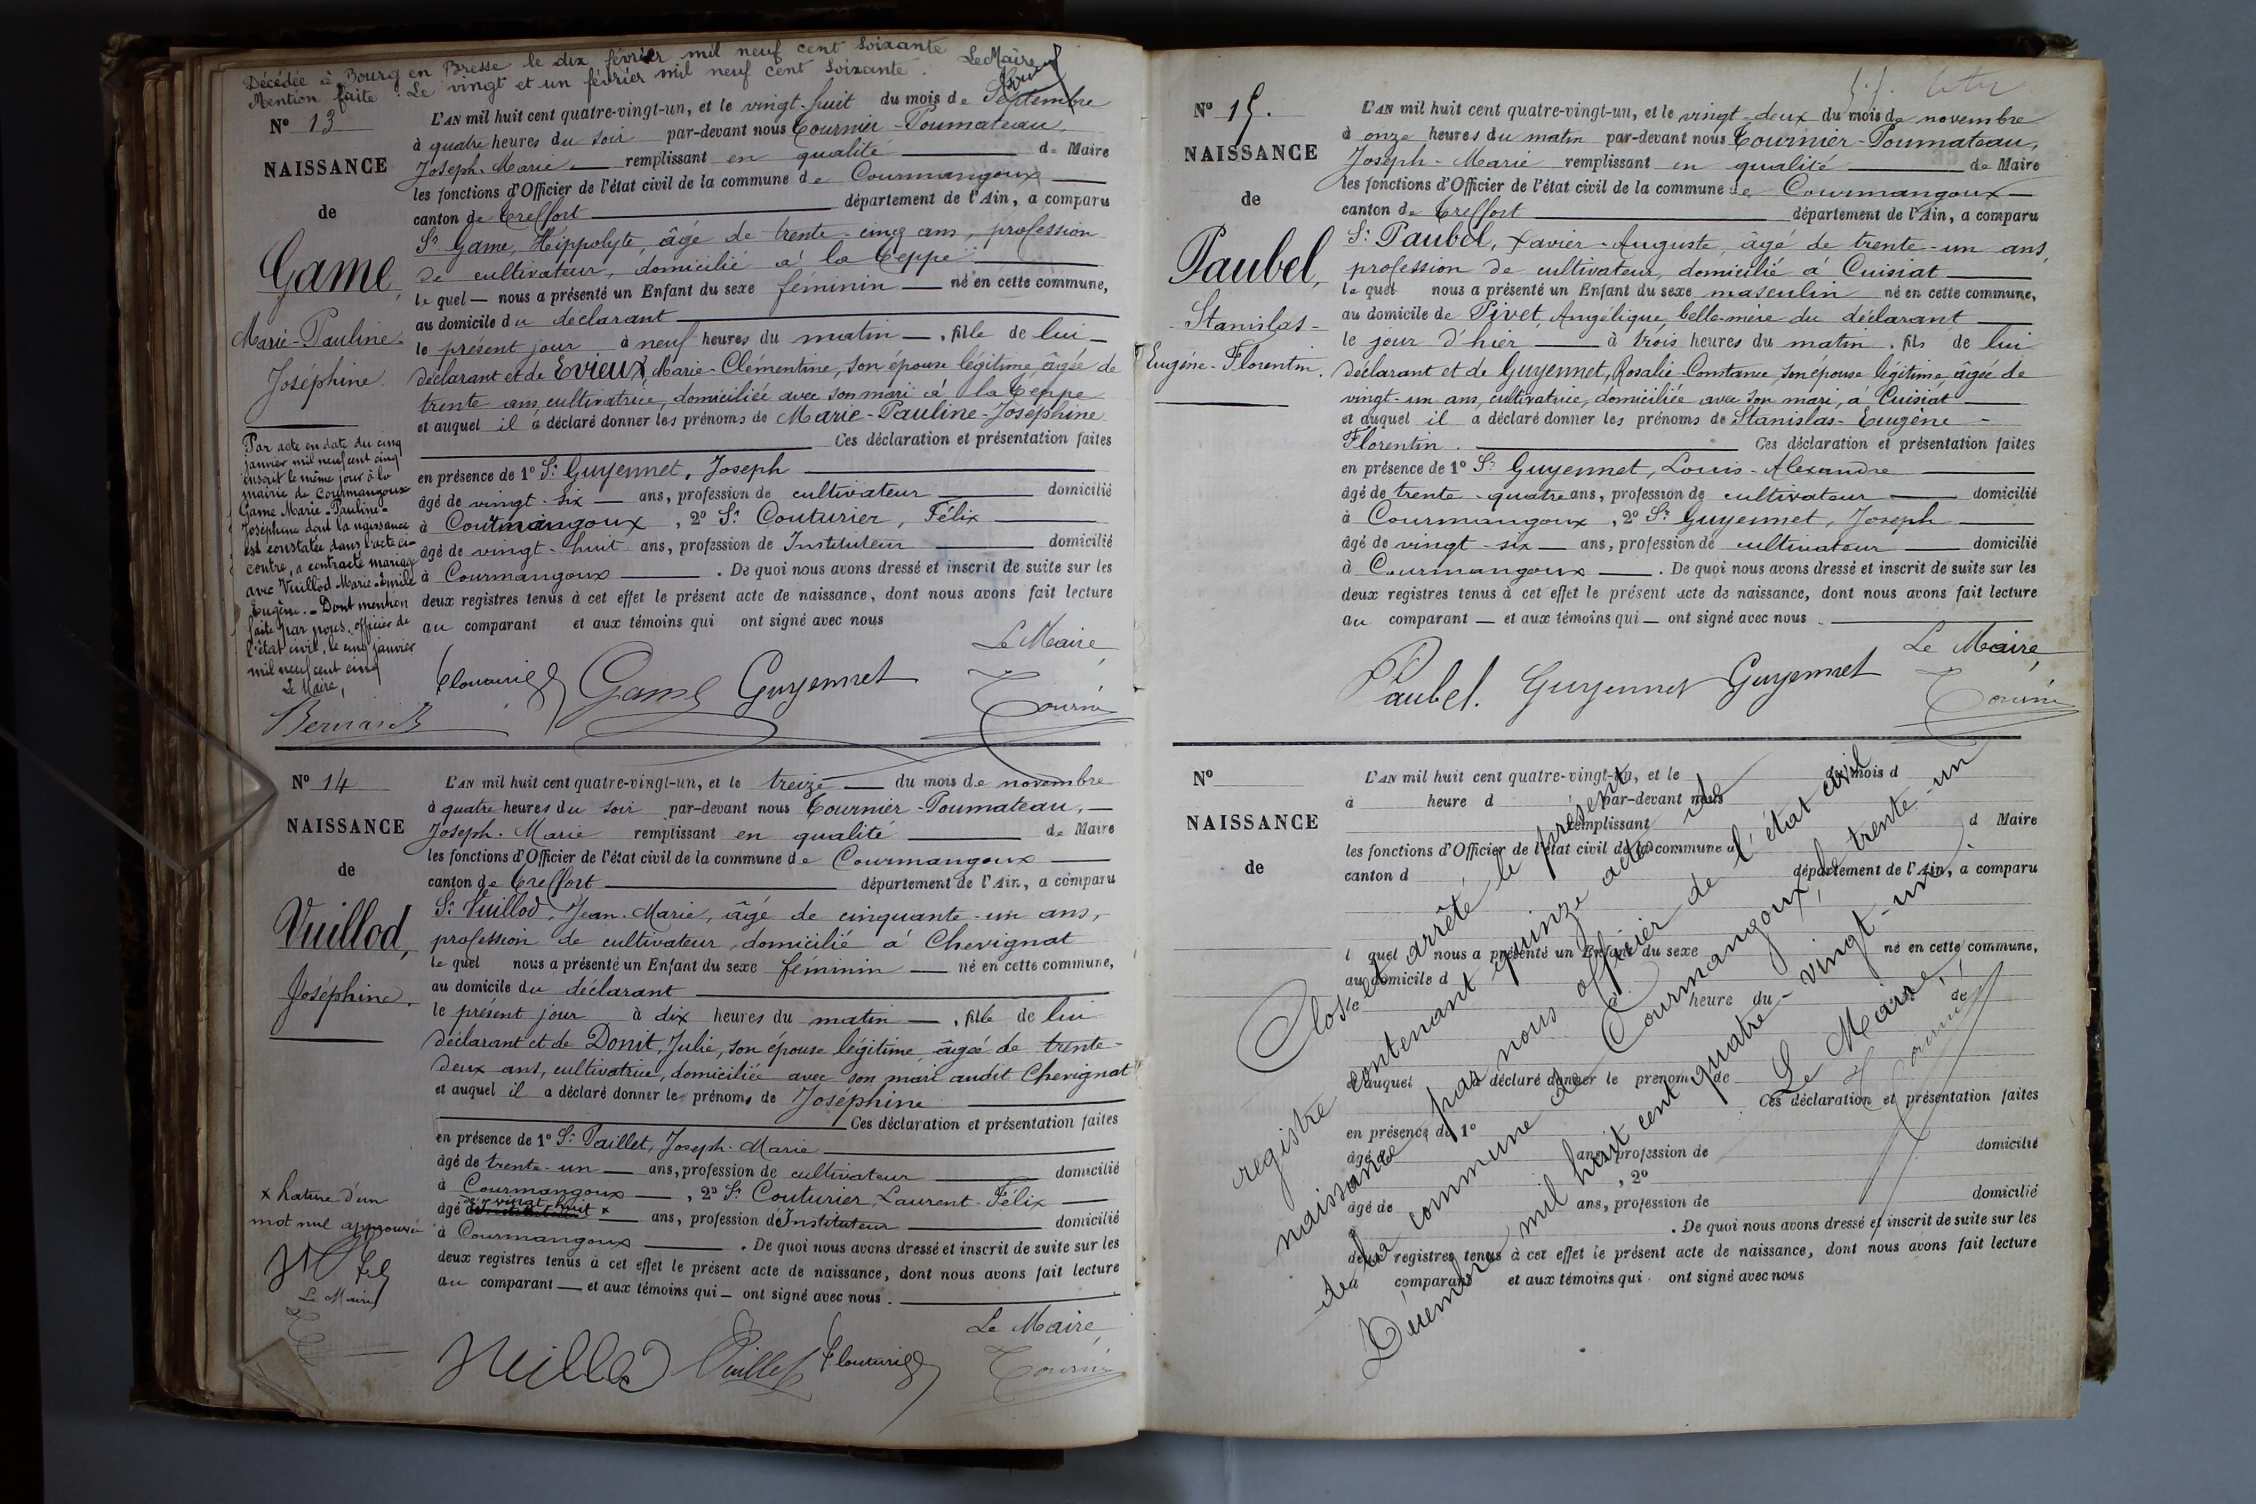 Décédée à Bourg en Bresse le dix février mil neuf cent soixante
Mention faite : Le vingt et un février mil neuf cent soixante. Le Maire
N° 13
NAISSANCE
de
Game,
Marie-Pauline-
Joséphine.
L'AN mil huit cent quatre-vingt-un, et le vingt-huit du mois de Septembre
à quatre heures du soir par-devant nous Tournier-Poumateau,
Joseph-Marie remplissant en qualité de Maire
les fonctions d'Officier de l'état civil de la commune de Courmangoux
canton de Treffort département de l'Ain, a comparu
Sr Game, Hippolyte, âgé de trente-cinq ans, profession
de cultivateur, domicilié à la Teppe
le quel nous a présenté un Enfant du sexe féminin né en cette commune,
au domicile du déclarant
le présent jour à neuf heures du matin, fille de lui
déclarant et de Evieux, Marie-Clémentine, son épouse légitime, âgée de
trente ans, cultivatrice, domiciliée avec son mari à la Teppe
et auquel il a déclaré donner les prénoms de Marie-Pauline-Joséphine
Ces déclaration et présentation faites
en présence de 1° Sr Guyennet, Joseph
âgé de vingt-six ans, profession de cultivateur domicilié
à Courmangoux, 2° Sr Couturier, Félix
âgé de vingt-huit ans, profession de Instituteur domicilié
à Courmangoux. De quoi nous avons dressé et inscrit de suite sur les
deux registres tenus à cet effet le présent acte de naissance, dont nous avons fait lecture
au comparant et aux témoins qui ont signé avec nous
Le Maire,
Fcouturier Game Guyennet Tournier
Par acte en date du cinq
janvier mil neuf cent cinq
inscrit le même jour à la
mairie de Courmangoux
Game Marie-Pauline-
Joséphine dont la naissance
est constatée dans l'acte ci-
contre, a contracté mariage
avec Vuillod Marie-Emile
Eugène. - Dont mention
faite par nous, officier de
l'état civil, le cinq janvier
mil neuf cent cinq
Le Maire,
Bernard
N° 14
NAISSANCE
de
Vuillod,
Joséphine.
L'AN mil huit cent quatre-vingt-un, et le treize du mois de novembre
à quatre heures du soir par-devant nous Tournier-Poumateau,
Joseph-Marie remplissant en qualité de Maire
les fonctions d'Officier de l'état civil de la commune de Courmangoux
canton de Treffort département de l'Ain, a comparu
Sr Vuillod, Jean-Marie, âgé de cinquante-un ans,
profession de cultivateur, domicilié à Chevignat
le quel nous a présenté un Enfant du sexe féminin né en cette commune,
au domicile du déclarant
le présent jour à dix heures du matin, fille de lui
déclarant et de Donit, Julie, son épouse légitime, âgée de trente-
deux ans, cultivatrice, domiciliée avec son mari audit Chevignat
et auquel il a déclaré donner les prénoms de Joséphine
Ces déclaration et présentation faites
en présence de 1° Sr Paillet, Joseph-Marie
âgé de trente-un ans, profession de cultivateur domicilié
à Courmangoux, 2° Sr Couturier, Laurent-Félix
âgé de vingt-huit x ans, profession de Instituteur domicilié
à Courmangoux. De quoi nous avons dressé et inscrit de suite sur les
deux registres tenus à cet effet le présent acte de naissance, dont nous avons fait lecture
au comparant et aux témoins qui ont signé avec nous.
Le Maire,
Vuillod Paillet Fcouturier Tournier
x Rature d'un
mot nul approuvée
Le Maire
N° 15.
NAISSANCE
de
Paubel,
Stanislas-
Eugène-Florentin.
L'AN mil huit cent quatre-vingt-un, et le vingt-deux du mois de novembre
à onze heures du matin par-devant nous Tournier-Poumateau,
Joseph-Marie remplissant en qualité de Maire
les fonctions d'Officier de l'état civil de la commune de Courmangoux
canton de Treffort département de l'Ain, a comparu
Sr Paubel, Xavier-Auguste, âgé de trente-un ans,
profession de cultivateur, domicilié à Cuisiat
le quel nous a présenté un Enfant du sexe masculin né en cette commune,
au domicile de Pivet, Angélique, belle-mère du déclarant
le jour d'hier à trois heures du matin, fils de lui
déclarant et de Guyennet, Rosalie-Constance, son épouse légitime, âgée de
vingt-un ans, cultivatrice, domiciliée avec son mari, à Cuisiat
et auquel il a déclaré donner les prénoms de Stanislas-Eugène-
Florentin. Ces déclaration et présentation faites
en présence de 1° Sr Guyennet, Louis-Alexandre
âgé de trente-quatre ans, profession de cultivateur domicilié
à Courmangoux, 2° Sr Guyennet, Joseph
âgé de vingt-six ans, profession de cultivateur domicilié
à Courmangoux. De quoi nous avons dressé et inscrit de suite sur les
deux registres tenus à cet effet le présent acte de naissance, dont nous avons fait lecture
au comparant et aux témoins qui ont signé avec nous.
Le Maire,
Paubel. Guyennet Guyennet Tournier
N°
NAISSANCE
de
L'AN mil huit cent quatre-vingt-un, et le du mois d
à heure d par-devant nous
remplissant d Maire
les fonctions d'Officier de l'état civil de la commune d
canton d département de l'Ain, a comparu
l quel nous a présenté un Enfant du sexe né en cette commune,
au domicile d
heure du de
et auquel a déclaré donner le prénom de
Ces déclaration et présentation faites
en présence de 1°
âgé de ans, profession de domicilié
, 2°
âgé de ans, profession de domicilié
. De quoi nous avons dressé et inscrit de suite sur les
deux registres tenus à cet effet le présent acte de naissance, dont nous avons fait lecture
comparant et aux témoins qui ont signé avec nous
Clos et arrêté le présent
registre contenant quinze actes de
naissance par nous officier de l'état civil
de la commune de Courmangoux, le trente-un
Décembre mil huit cent quatre-vingt-un.
Le Maire,
Tournier